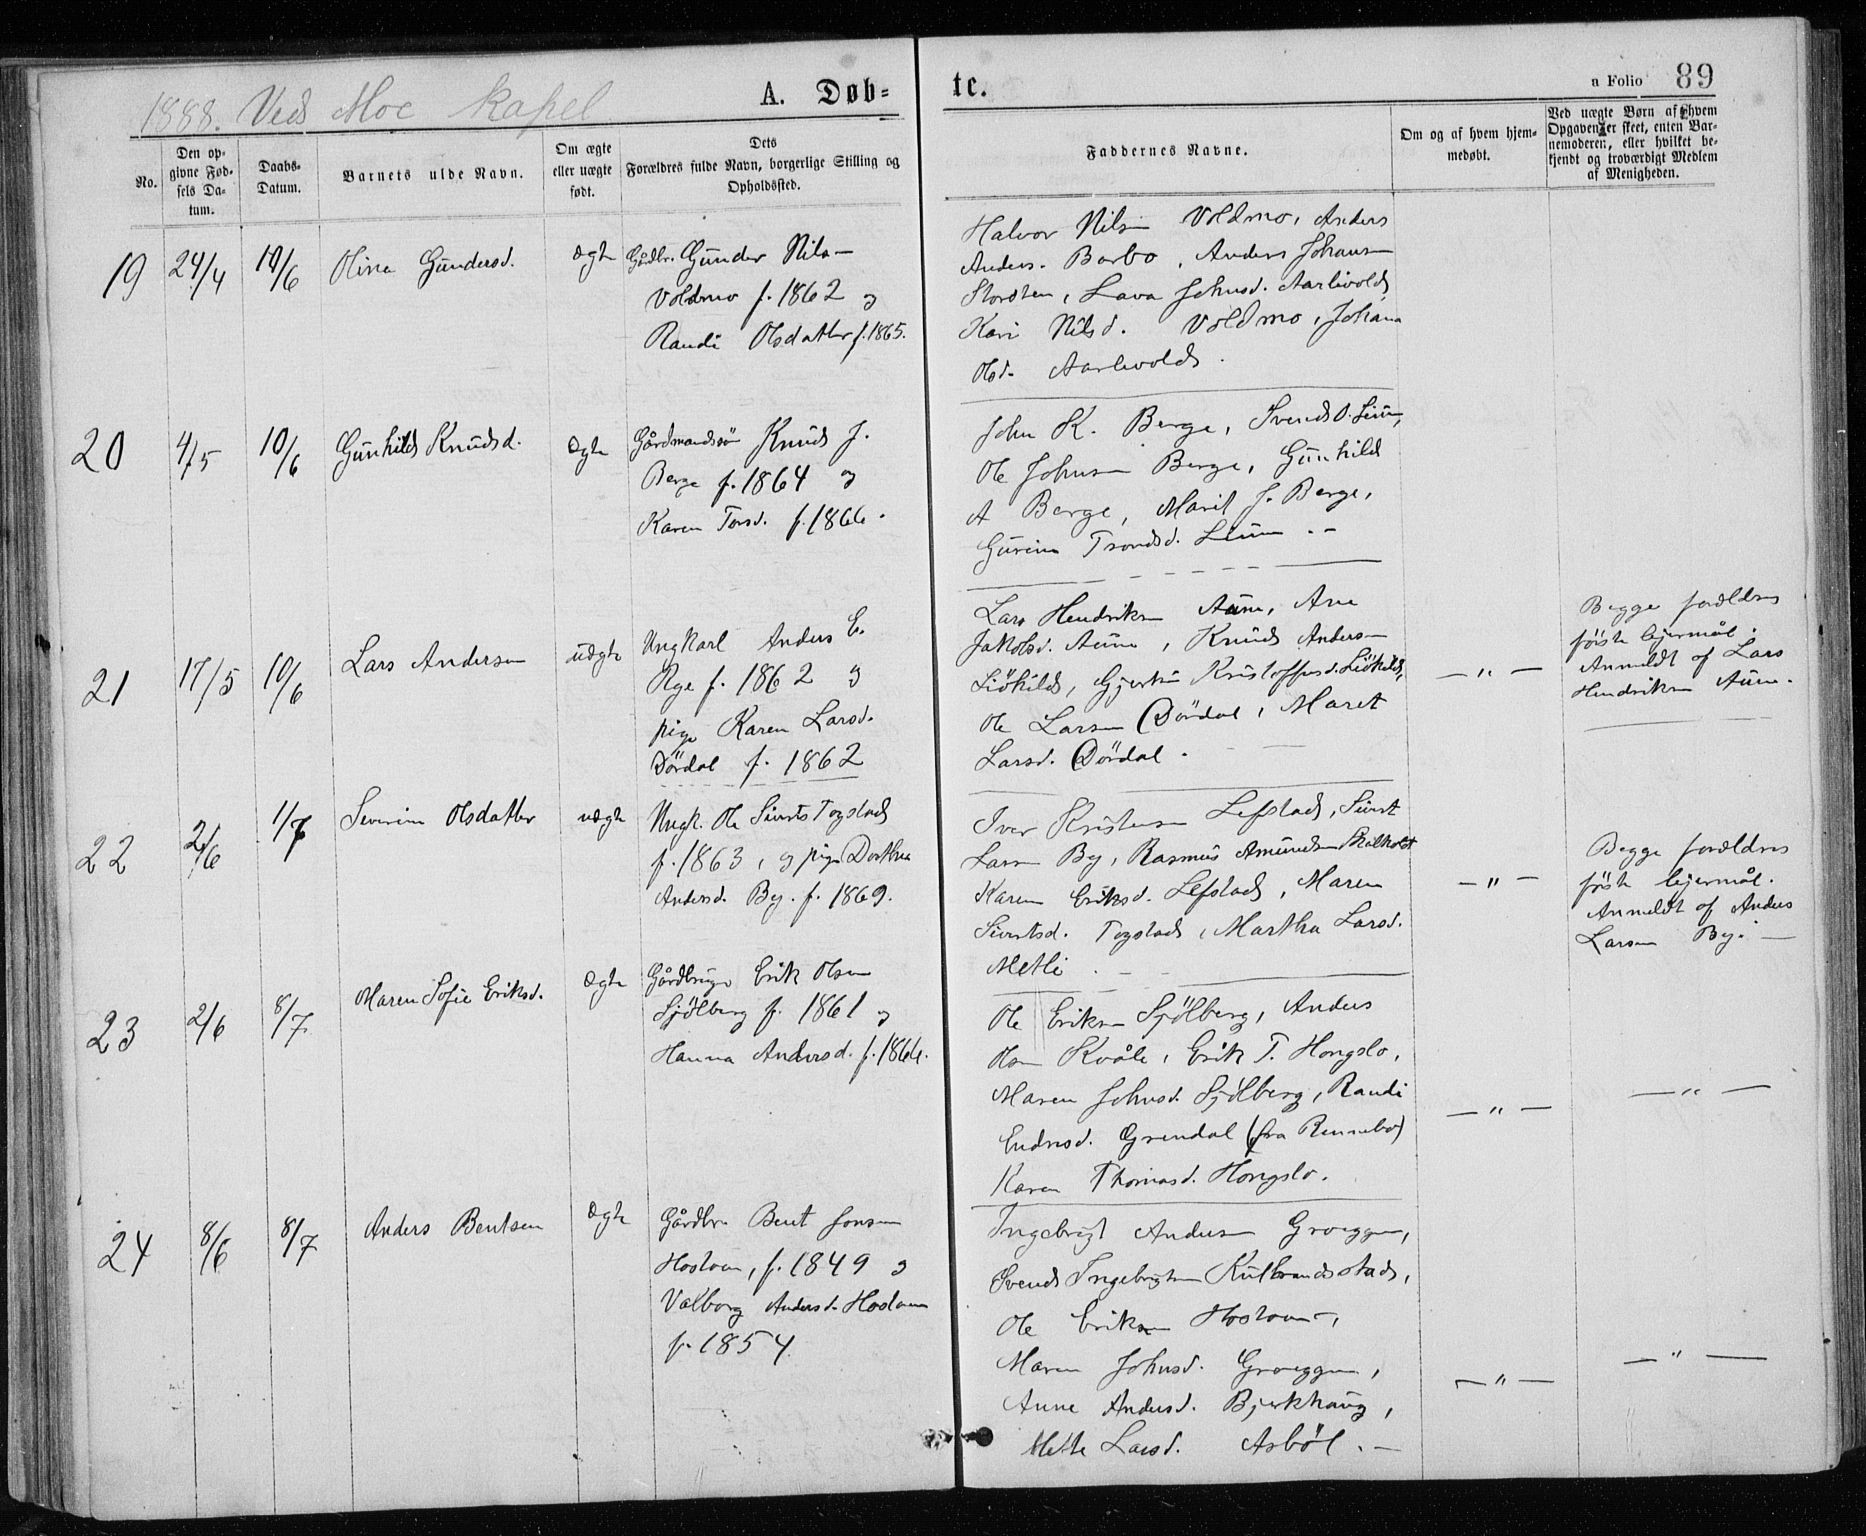 1888. Ved Moe kapel
A. Døb-
te.
a Folio 89
No.
Den op-
givne Fød-
sels Da-
tum.
Daabs-
Datum.
Barnets ulde Navn.
Om ægte
eller uægte
født.
Dets
Forældres fulde Navn, borgerlige Stilling og
Opholdssted.
Faddernes Navne.
Om og af hvem hjem-
medøbt.
Ved uægte Børn af hvem
Opgaven er skeet, enten Bar-
nemoderen, eller hvilket be-
kjendt og troværdigt Medlem
af Menigheden.
19 24/4 10/6 Olina Gundersd. ægte
Gårdbr. Gunder Nils-
Voldmo f. 1862 og
Randi Olsdatter f. 1865.
Halvor Nilsen Voldmo, Anders
Anders. Barbo, Anders Johansen
Stordten, Lava Johnsd. Aarlivold,
Kari Nilsd. Voldmo, Johana
Olsd. Aarlivold.
20 4/5 10/6 Gunhild Knudsd. ægte
Gårdmandssøn Knud J.
Berge f. 1864 og
Karen Torsd. f. 1866.
John K. Berge, Svend O. Lium,
Ole Johnsen Berge, Gunhild
A Berge, Marit J. Berge,
Gurine Trondsd. Lium.
21 17/5 10/6 Lars Andersen uægte
Ungkarl Anders E.
Rye f. 1862 og
pige Karen Larsd.
Dørdal f. 1862
Lars Hendriksen Aune, Ane
Jakobsd. Aune, Knud Andersen
Liøkild, Gjertru Kristoffersd. Liøkild,
Ole Larsen Dørdal, Maret
Larsd. Dørdal.
— " —
Begge forældres
føste lejermål.
Anmeldt af Lars
Hendriksen Aune.
22 2/6 1/7 Severine Olsdatter uægte
Ungk. Ole Siverts Togstad
f. 1863, og pige Dorthea
Andersd. By. f. 1869.
Iver Kristensen Lefstad, Sivert
Larsen By, Rasmus Amundsen Skalholt
Karen Eriksd. Lefstad, Maren
Sivertsd. Togstad, Martha Larsd.
Metli.
— " —
Begge forældres
føste lejermål.
Anmeldt af Anders
Larsen By. —
23 2/6 8/7 Maren Sofie Eriksd. ægte
Gårdbruger Erik Olsen
Sjølberg f. 1861 og
Hanna Andersd. f. 1866.
Ole Eriksen Sjølberg, Anders
Olsen Kvåle, Erik T. Hongslo,
Maren Johnsd. Sjølberg, Randi
Endresd. Grendal (fra Rennebo)
Karen Thomasd. Hongslo.
— " —
— " —
24 8/6 8/7 Anders Bentsen ægte
Gårdbr. Bent Jonsen
Hostoen, f. 1849 og
Valborg Andersd. Hostoen
f. 1854
Ingebrigt Andersen Groeggen,
Svend Ingebrigtsen Kulbrandstad,
Ole Eriksen Hostoen,
Maren Johnsd. Groeggen,
Anne Andersd. Bjerkhaug,
Mette Larsd. Asbøl. —
— " —
— " —